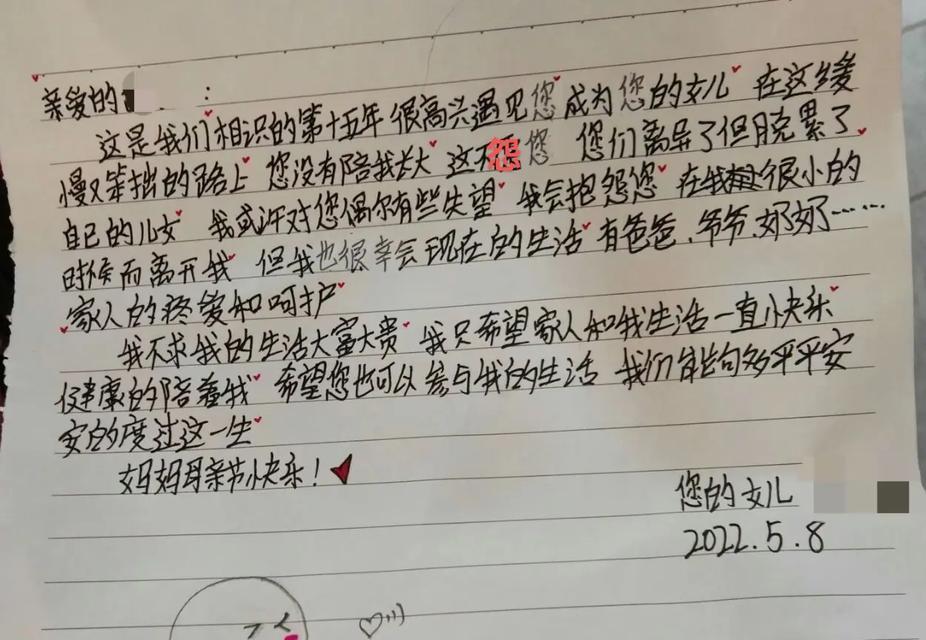 亲爱的 :
这是我们相识的第十五年 很高兴遇见您 成为您的女儿 在这缓
慢又笨拙的路上 您没有陪我长大 这不怨您 您们离异了但脱累了
自己的儿女 我或许对您偶尔有些失望 我会抱怨您 在我很小的
时候而离开我 但我也很幸会现在的生活 有爸爸、爷爷、奶奶……
家人的疼爱和呵护
我不求我的生活大富大贵 我只希望家人和我生活一直快乐
健康的陪着我 希望您也可以参与我的生活 我们能够平平安
安的度过这一生
妈妈母亲节快乐!
您的女儿
2022.5.8